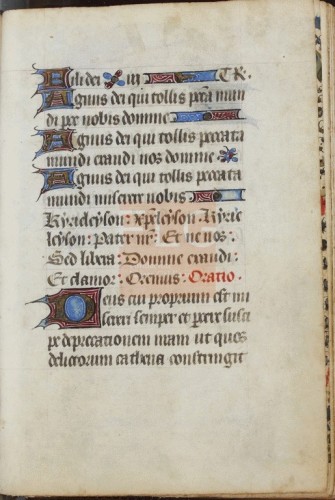 Fili dei
Agnus dei qui tollis pcc̄ta mun
di per nobis domine
Agnus dei qui tollis peccata
mundi exaudi nos domine
Agnus dei qui tollis peccata
mundi miserer nobis
Kyrieleyson: xp̄eleyson. Kyrie
leyson: Pater nr̄. Et ne nos.
Sed libera: Domine exaudi:
Et clamor. Oremus. Oratio.
Deus cui proprium est mi
sereri semper et parcere susci
pe deprecationem nram ut quos
delictorum cathena constringit